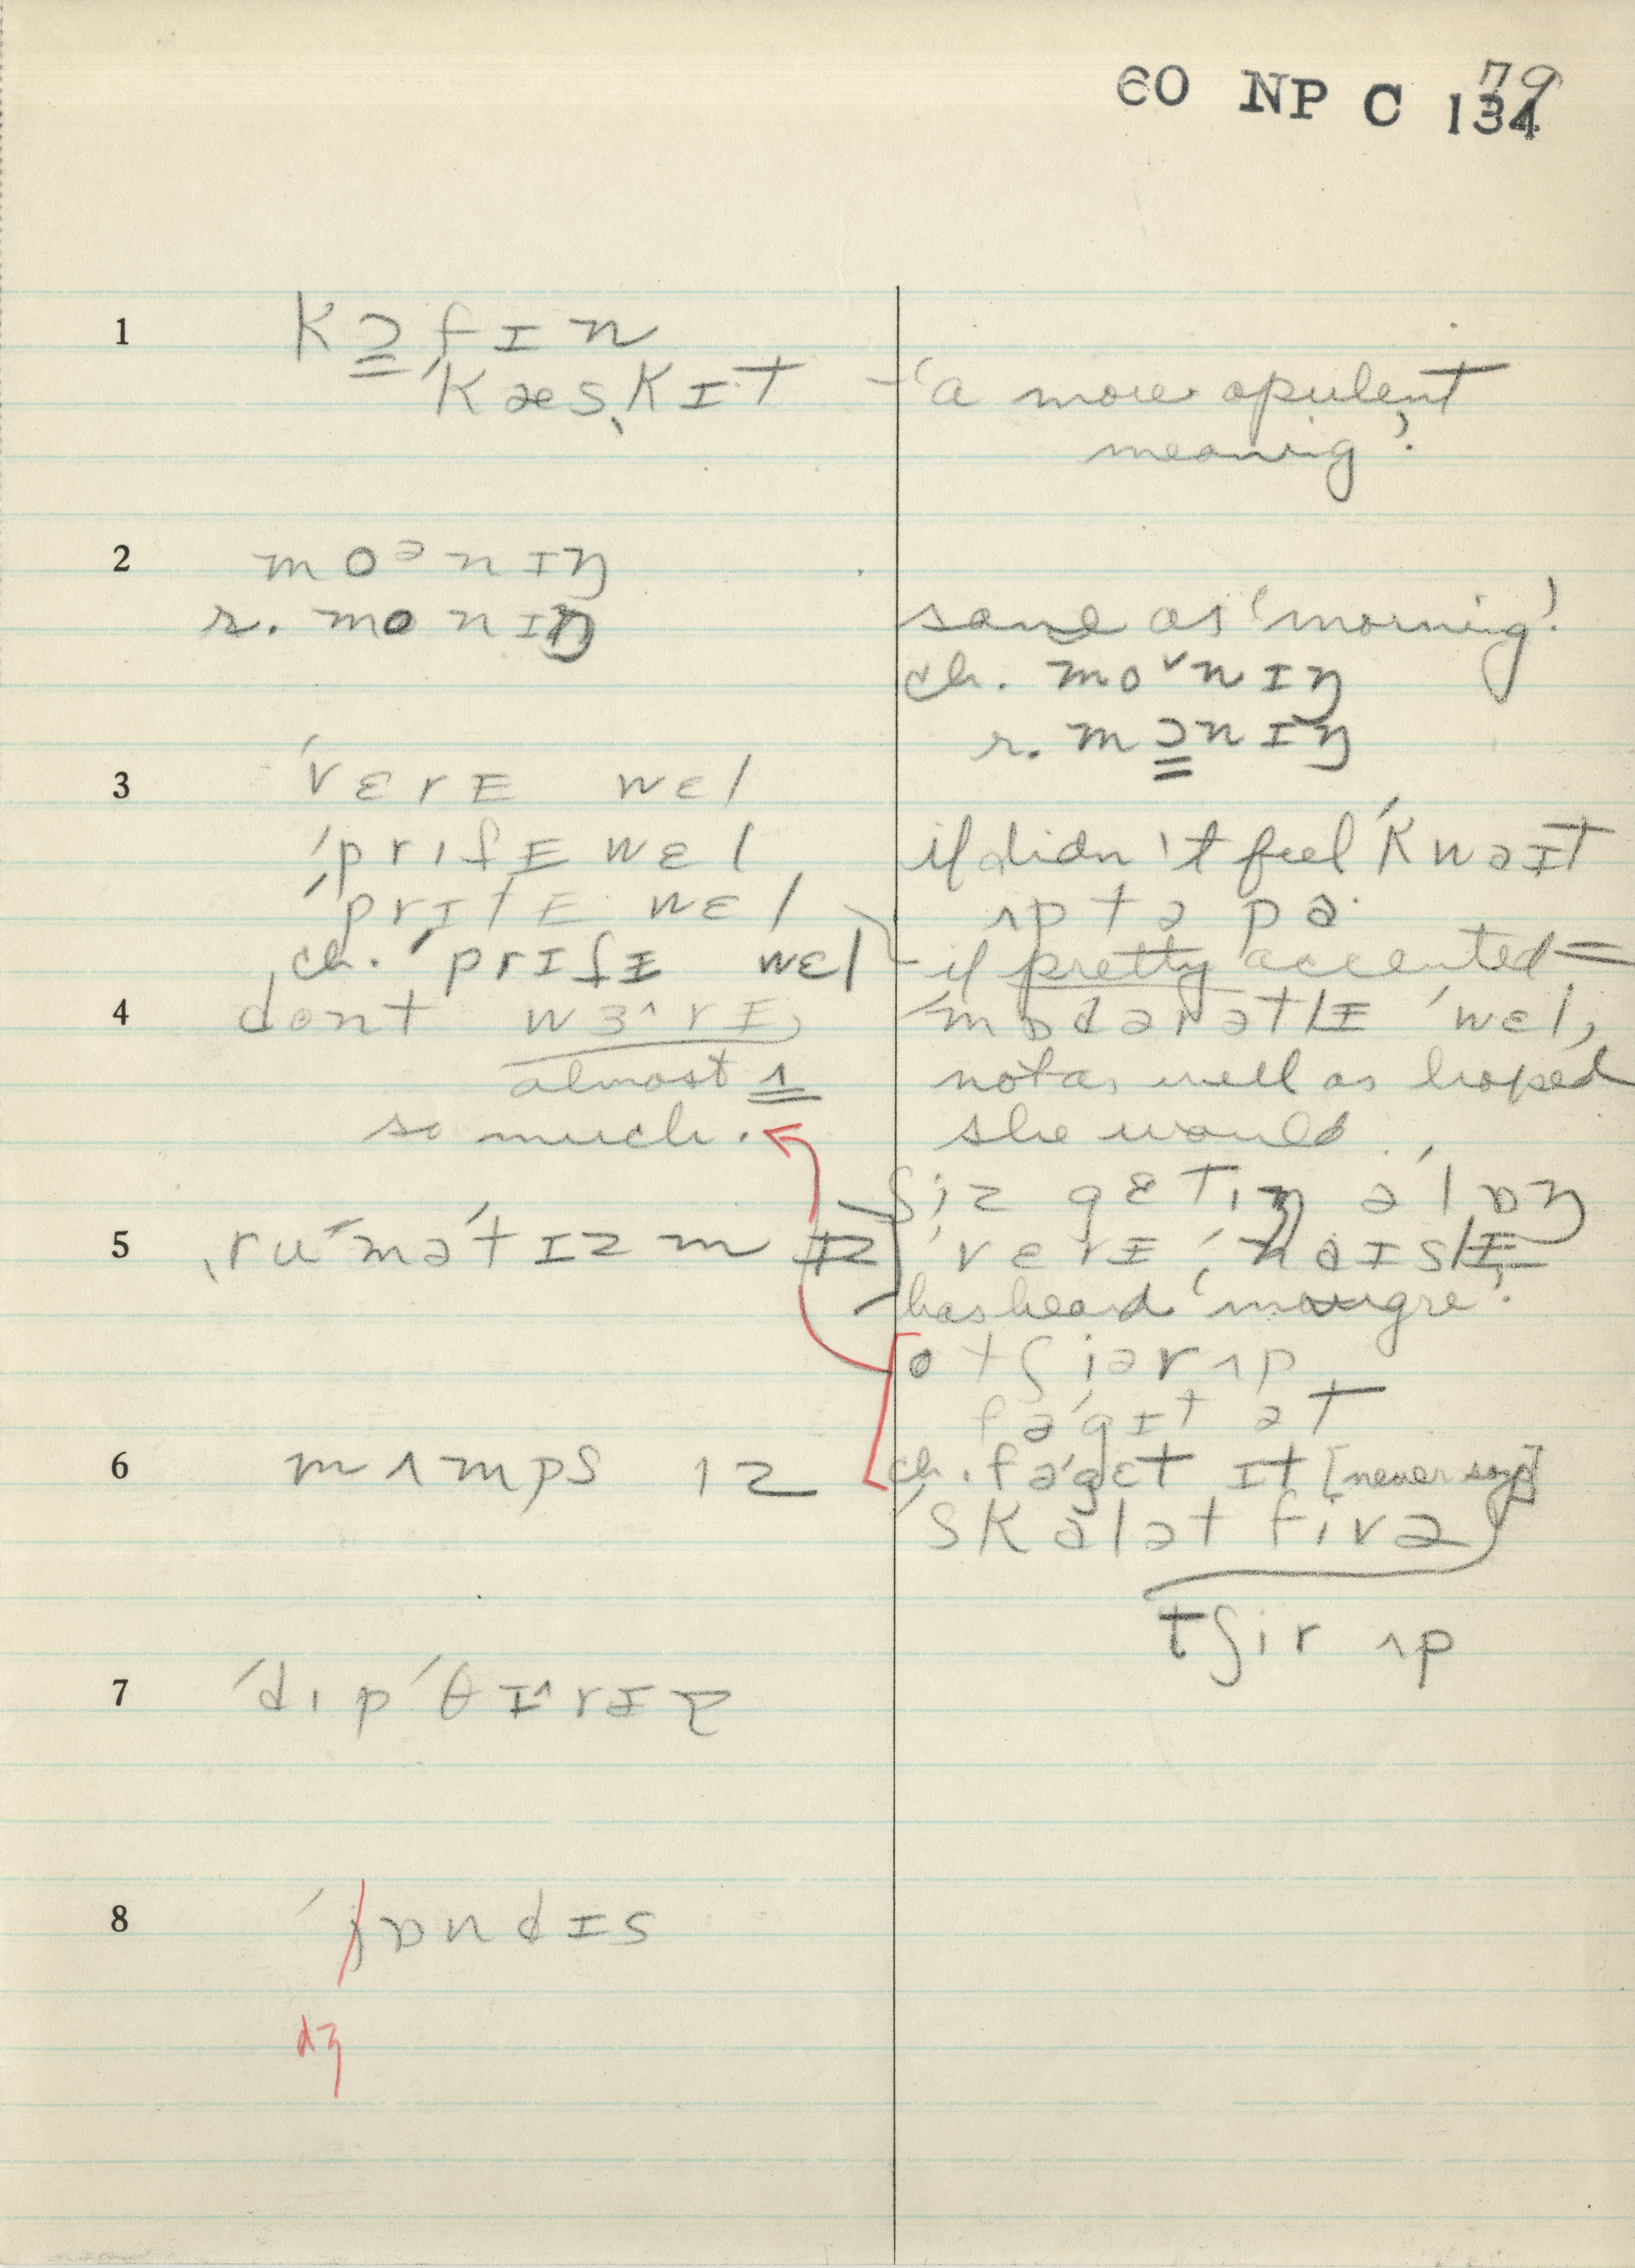 60 NP C 134
79
1 kɔfɪn
ˈkæsˌkɪt – 'a more opulent
meaning'.
2 moᵊnɪŋ
r. monɪŋ
same as 'morning'.
ch. mo˅nɪŋ
r. mɔnɪŋ
3 ˈvɛrɪ wɛl
ˈprɪʃɪ wɛl
ˈprɪtɪ wɛl
ch. ˈprɪʃɪ wɛl
if didn't feel ˈkwaɪt
ʌp tə pa·
– if pretty accented =
ˈmɒdərətlɪ ˈwɛl,
not as well as hoped
she would.
4 dont wɜ^rɪ
almost ʌ
so much.
ʃiz gɛtɪŋ əˈlɒŋ
ˈvɛrɪ ˈnaɪslɪ
has heard 'maugre'.
5 ˌruˈməˈtɪzm ɪz
otʃiərʌp
fəˈgɪt ət
ch. fəˈgɛt ɪt [never says]
6 mʌmps ɪz
ˈskalət fivə
tʃir ʌp
7 ˈdɪpˈθɪ^rɪə
8 ˈjɒndɪs
dʒ